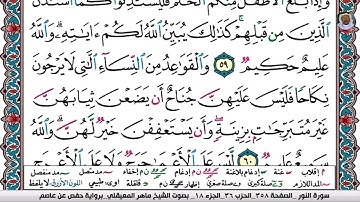 وَإِذَا بَلَغَ ٱلْأَطْفَٰلُ مِنكُمُ ٱلْحُلُمَ فَلْيَسْتَـْٔذِنُوا۟ كَمَا ٱسْتَـْٔذَنَ
ٱلَّذِينَ مِن قَبْلِهِمْ ۚ كَذَٰلِكَ يُبَيِّنُ ٱللَّهُ لَكُمْ ءَايَٰتِهِۦ ۗ وَٱللَّهُ
عَلِيمٌ حَكِيمٌ ٥٩ وَٱلْقَوَٰعِدُ مِنَ ٱلنِّسَآءِ ٱلَّٰتِى لَا يَرْجُونَ
نِكَاحًا فَلَيْسَ عَلَيْهِنَّ جُنَاحٌ أَن يَضَعْنَ ثِيَابَهُنَّ
غَيْرَ مُتَبَرِّجَٰتٍۭ بِزِينَةٍ ۖ وَأَن يَسْتَعْفِفْنَ خَيْرٌ لَّهُنَّ ۗ وَٱللَّهُ
سَمِيعٌ عَلِيمٌ ٦٠ لَّيْسَ عَلَى ٱلْأَعْمَىٰ حَرَجٌ وَلَا عَلَى ٱلْأَعْرَجِ
سورة النور _ الصفحة ٣٥٨_ الحزب ٣٦_ الجزء ١٨_ بصوت الشيخ ماهر المعيقلي_ برواية حفص عن عاصم